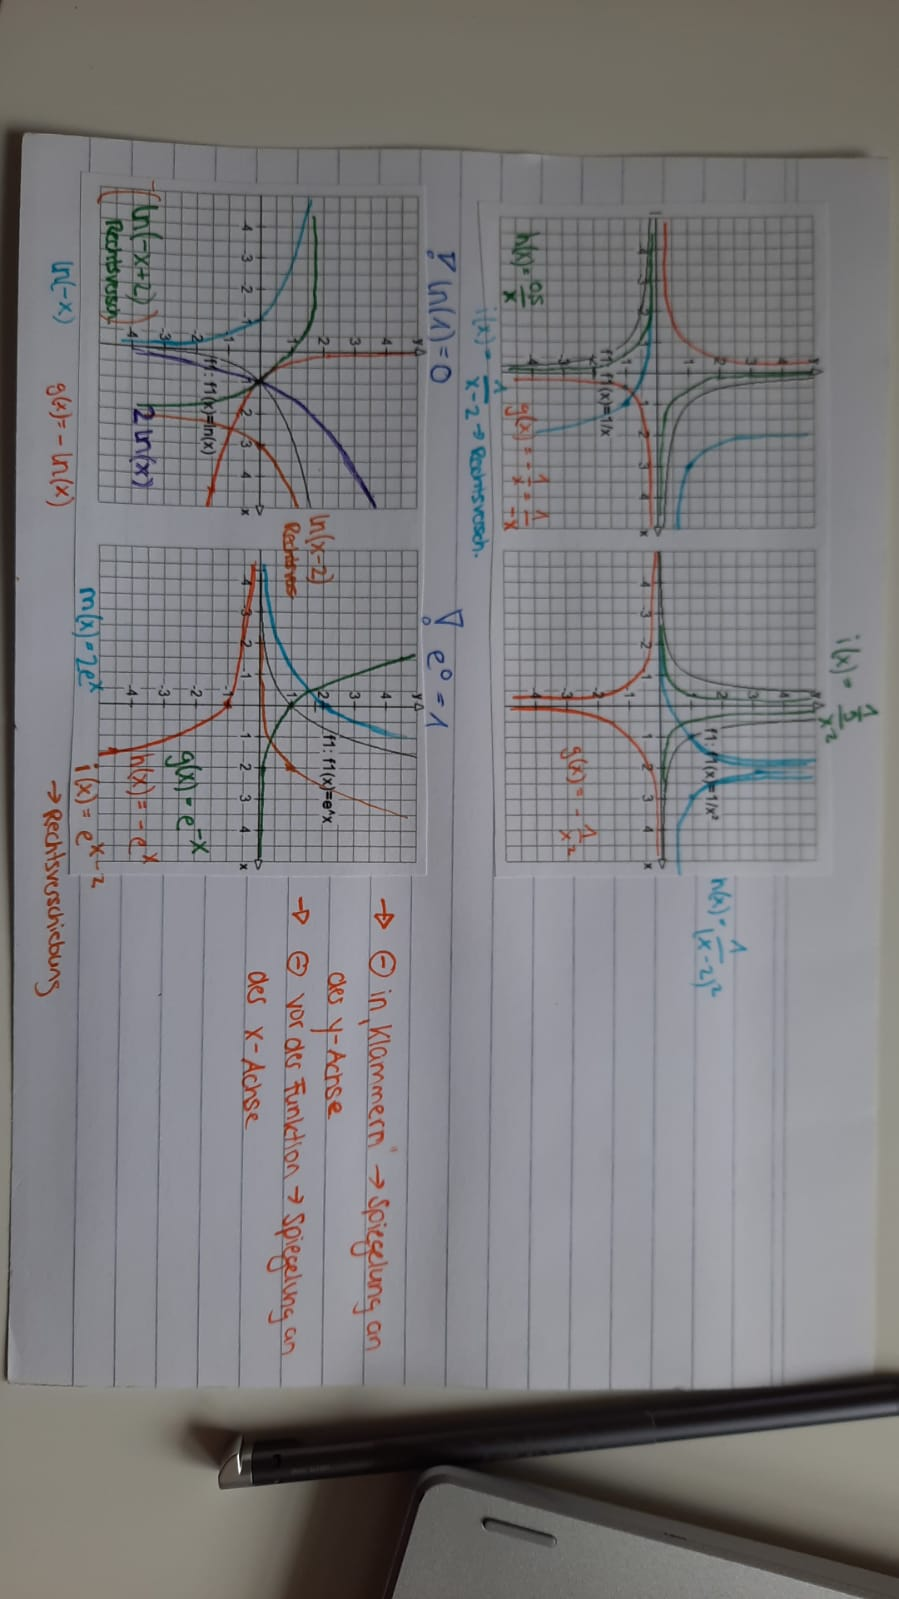 i(x) = 1/2/x²
y
f1: f1(x)=1/x
x
h(x) = 0,5/x
g(x) = - 1/x = 1/-x
i(x) = 1/x-2 → Rechtsversch.
y
f1: f1(x)=1/x²
x
g(x) = - 1/x²
h(x) = 1/(x-2)²
! ln(1) = 0
! e⁰ = 1
y
f1: f1(x)=ln(x)
x
ln(x-2)
Rechtsvers
2 ln(x)
(ln(-x+2))
Rechtsversch.
ln(-x)
g(x) = - ln(x)
y
f1: f1(x)=e^x
x
g(x) = e^-x
h(x) = -e^x
m(x) = 2e^x
i(x) = e^x-2
→ Rechtsverschiebung
→ ⊖ in „Klammern" → Spiegelung an
der y-Achse
→ ⊖ vor der Funktion → Spiegelung an
der x-Achse